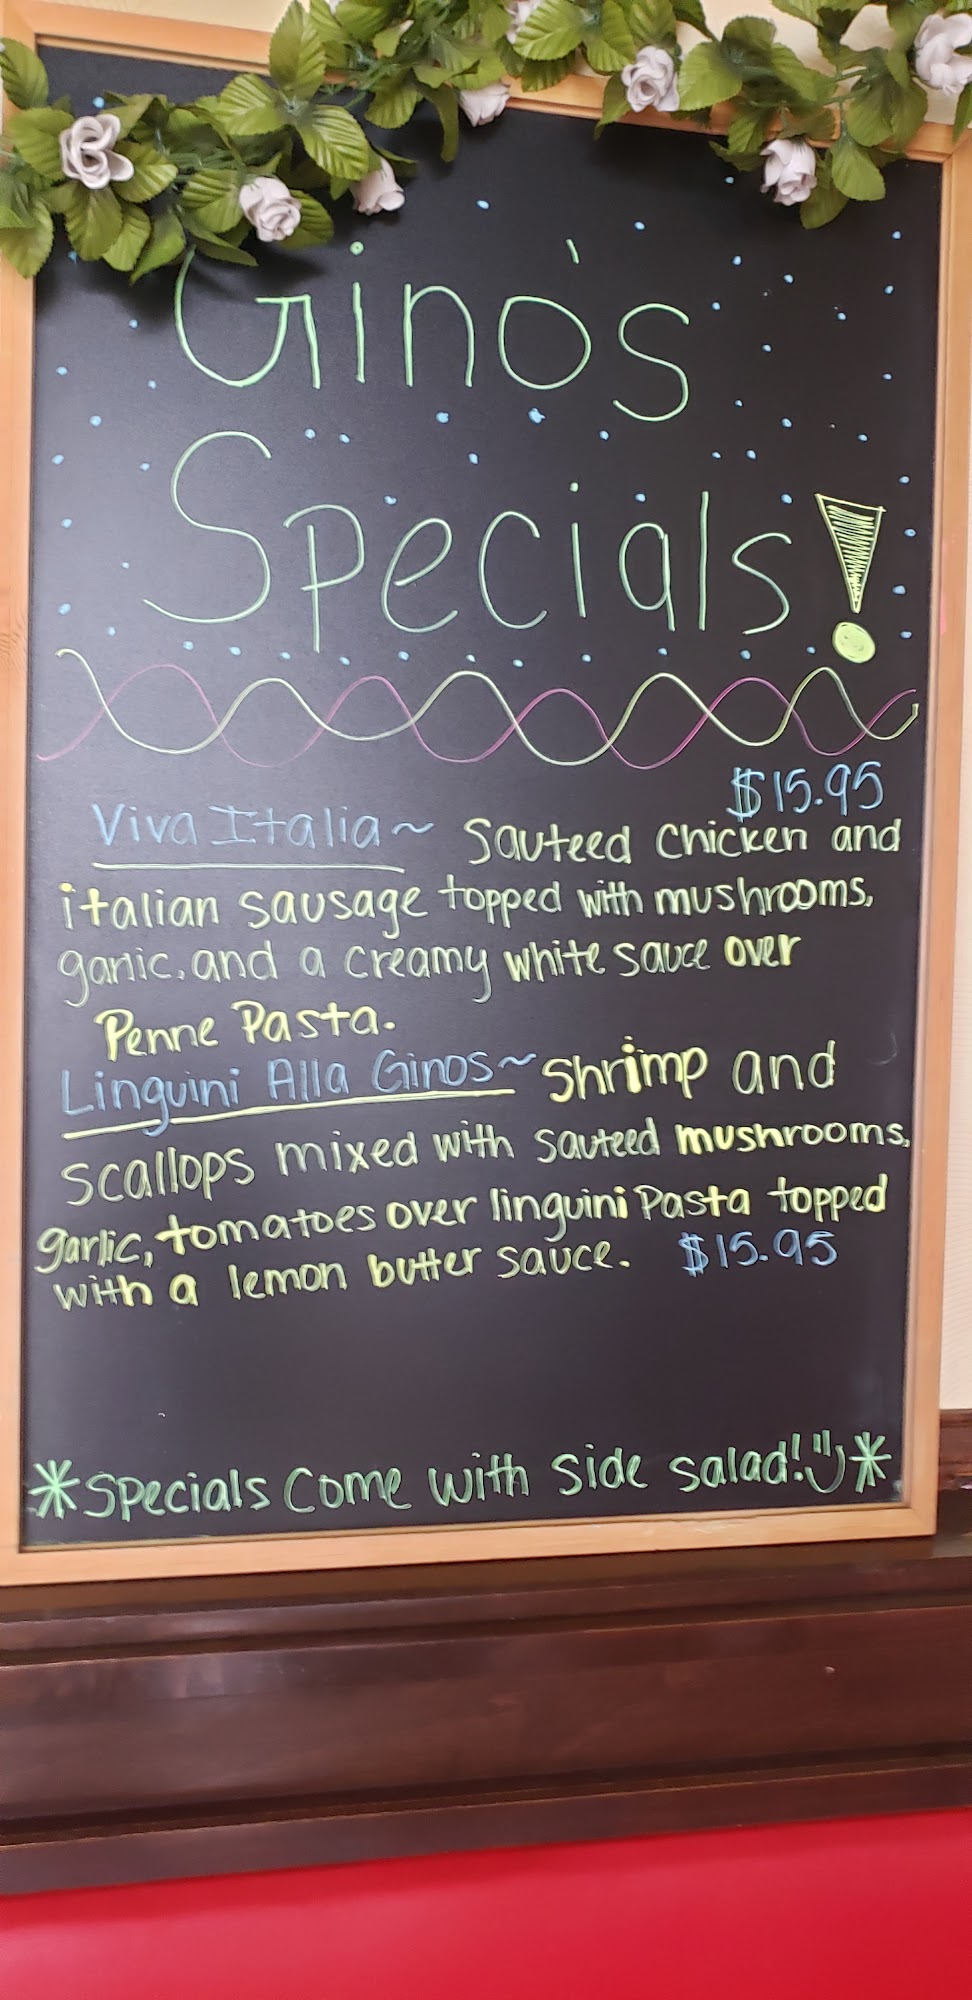 Gino's
Specials!
$15.95
Viva Italia~ Sauteed Chicken and
italian sausage topped with mushrooms,
garlic, and a creamy white sauce over
Penne Pasta.
Linguini Alla Ginos~ Shrimp and
scallops mixed with sauteed mushrooms,
garlic, tomatoes over linguini Pasta topped
with a lemon butter sauce. $15.95
*Specials Come with Side salad! *